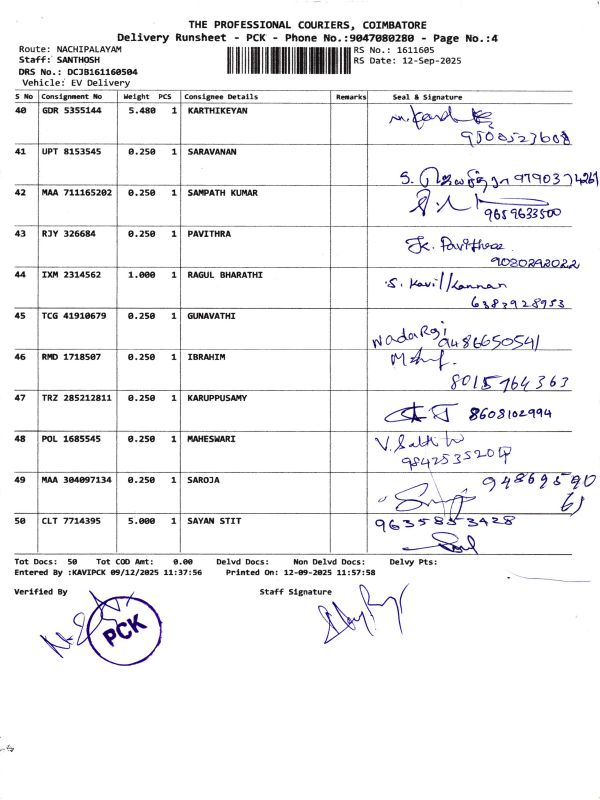 THE PROFESSIONAL COURIERS, COIMBATORE
Delivery Runsheet - PCK - Phone No.:9047080280 - Page No.:4
Route: NACHIPALAYAM
RS No.: 1611605
Staff: SANTHOSH
RS Date: 12-Sep-2025
DRS No.: DCJB161160504
Vehicle: EV Delivery
S No Consignment No Weight PCS Consignee Details Remarks Seal & Signature
40 GDR 5355144 5.480 1 KARTHIKEYAN
9500523608
41 UPT 8153545 0.250 1 SARAVANAN
S. 9790374261
42 MAA 711165202 0.250 1 SAMPATH KUMAR
9659633500
43 RJY 326684 0.250 1 PAVITHRA
Pavithra
9020292022
44 IXM 2314562 1.000 1 RAGUL BHARATHI
S. Kavil/kannan
6383928953
45 TCG 41910679 0.250 1 GUNAVATHI
9486650541
46 RMD 1718507 0.250 1 IBRAHIM
8015764363
47 TRZ 285212811 0.250 1 KARUPPUSAMY
8608102994
48 POL 1685545 0.250 1 MAHESWARI
49 MAA 304097134 0.250 1 SAROJA
50 CLT 7714395 5.000 1 SAYAN STIT
9635853428
Tot Docs: 50 Tot COD Amt: 0.00 Delvd Docs: Non Delvd Docs: Delvy Pts:
Entered By :KAVIPCK 09/12/2025 11:37:56 Printed On: 12-09-2025 11:57:58
Verified By Staff Signature
PCK